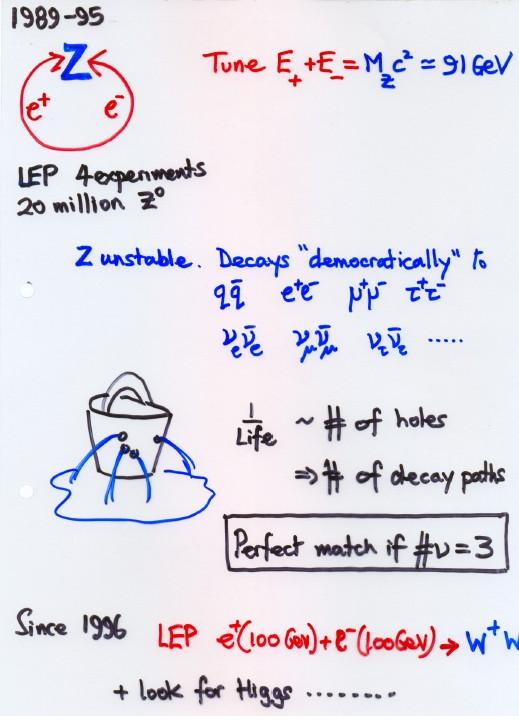 1989-95
Z
e⁺ e⁻
Tune E₊+E₋=M_Z c² ≃ 91 GeV
LEP 4 experiments
20 million Z⁰
Z unstable. Decays "democratically" to
qq̄ e⁺e⁻ μ⁺μ⁻ τ⁺τ⁻
νₑν̄ₑ ν_μν̄_μ ν_τν̄_τ .....
1/Life ~ # of holes
⇒ # of decay paths
Perfect match if #ν=3
Since 1996 LEP e⁺(100 GeV)+e⁻(100GeV)→W⁺W
+ look for Higgs ........